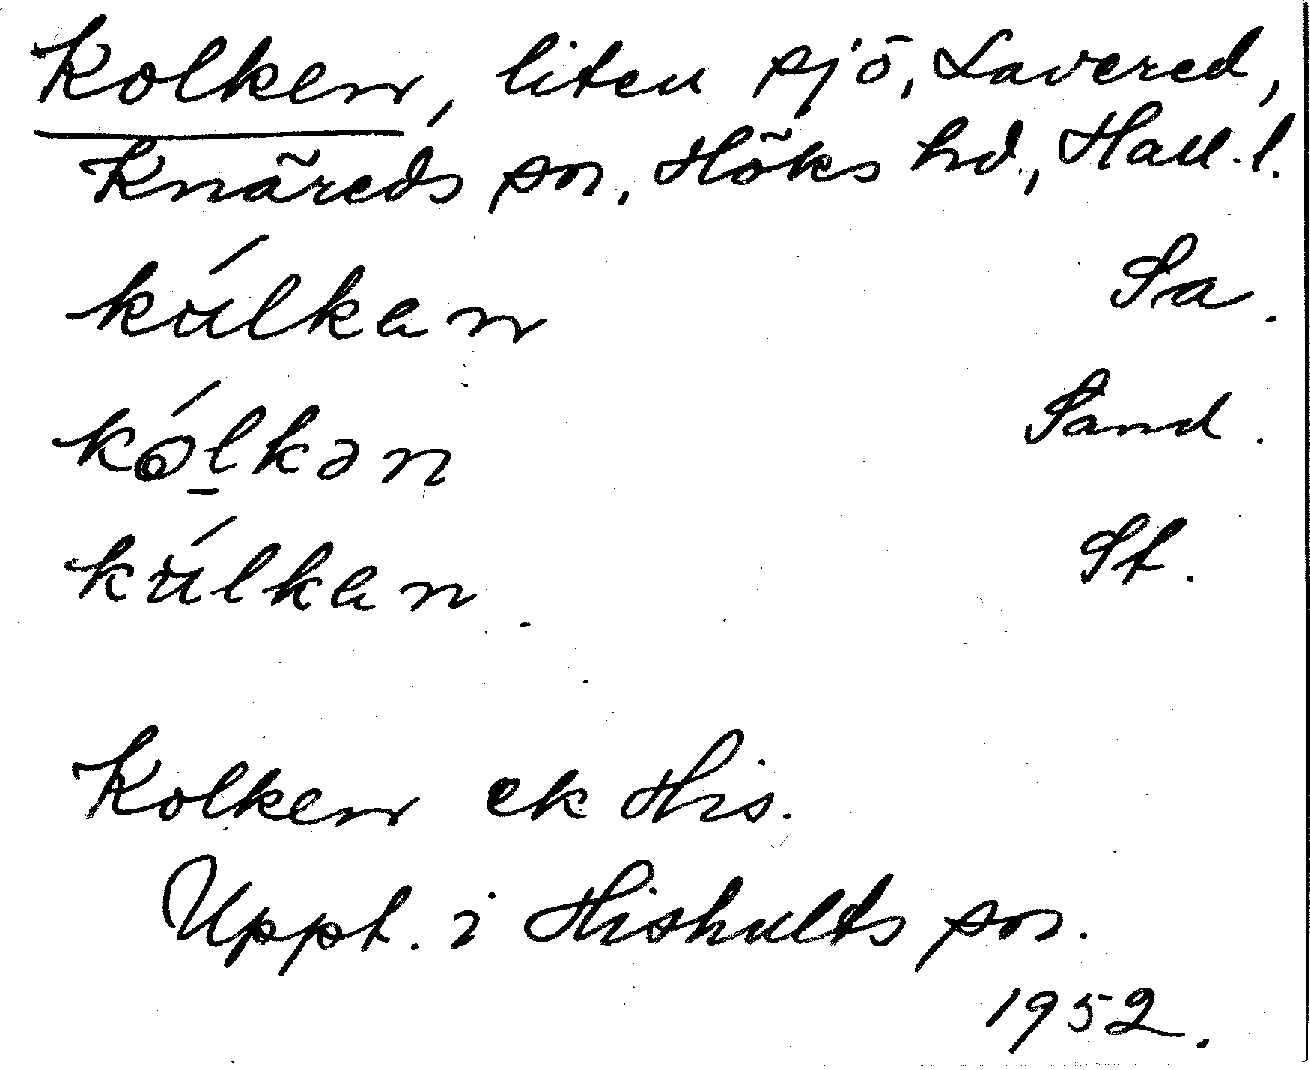 Kolken, liten sjö, Lavered,
Knäreds sn, Höks hd, Hall. l.
kúlkan Sa.
kǿlkən Sand.
kúlkan St.
Kolken ek His.
Uppt. i Hishults sn.
1952.